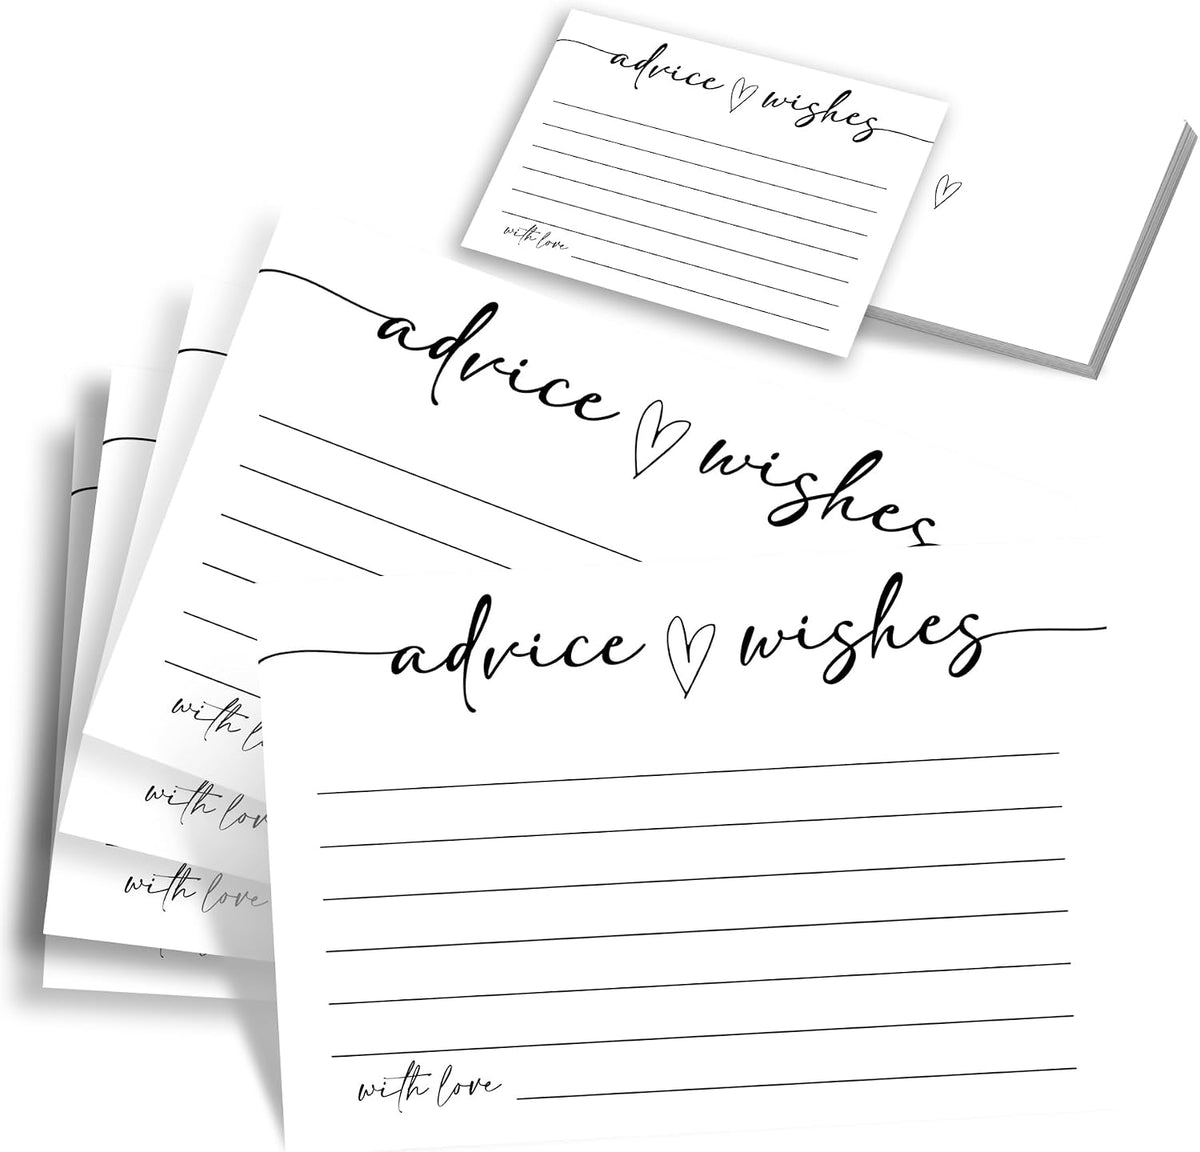 advice ♡ wishes
with love
advice ♡ wishes
with love
with love
advice ♡ wishes
with love
with love